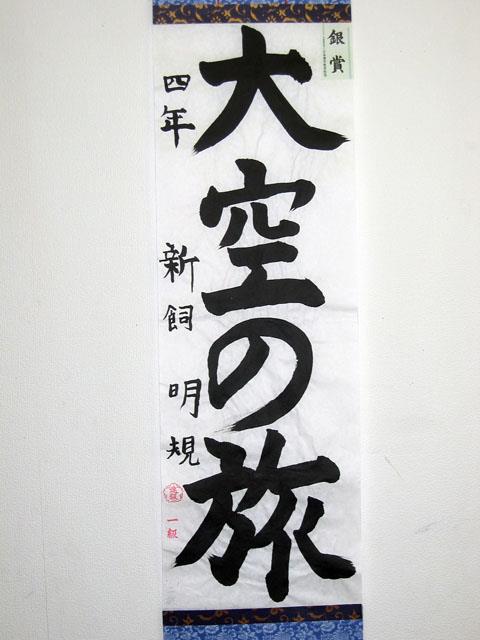 銀賞
大空の旅
四年 新飼 明規
一級